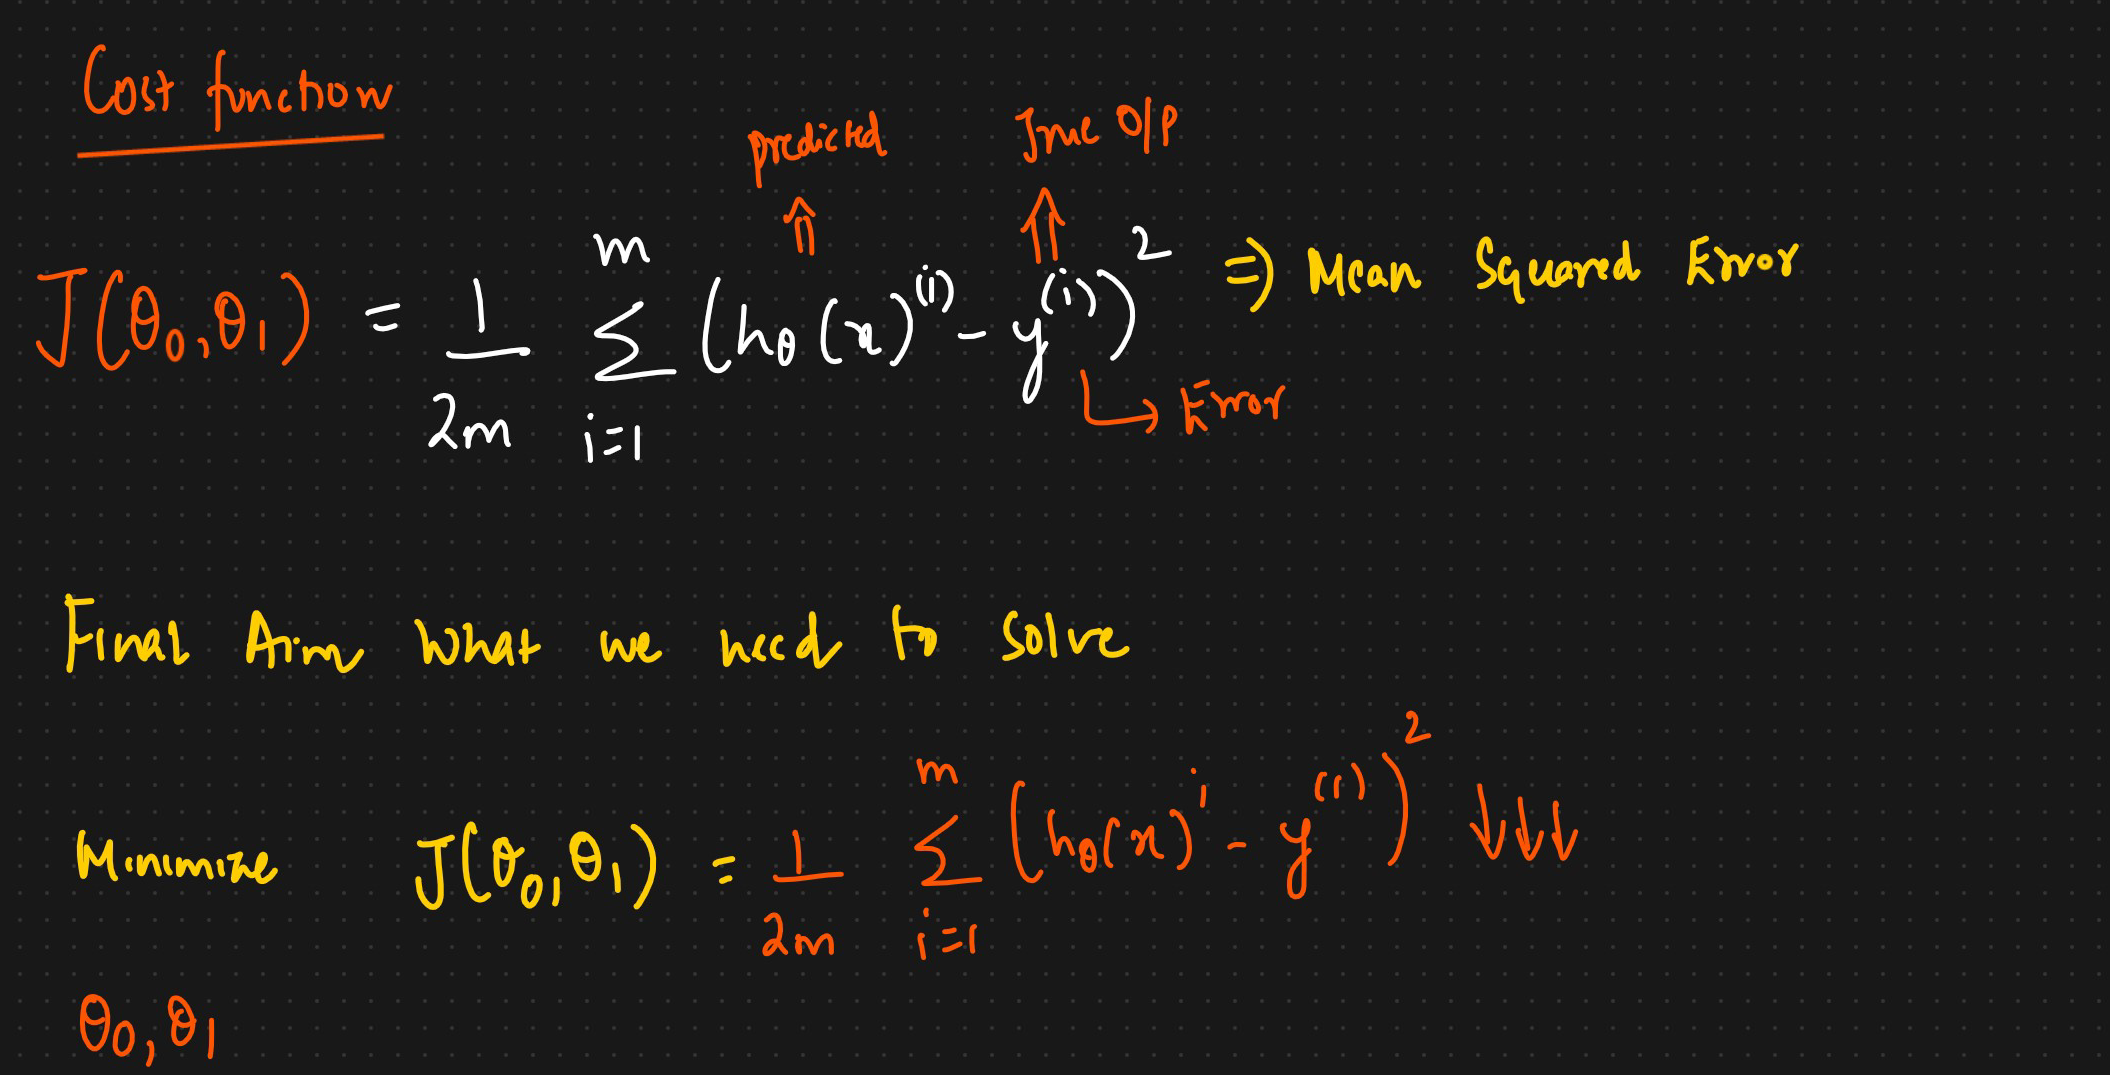 Cost function
predicted True O/P
⇑ ⇑
J(θ₀,θ₁) = 1/2m ∑ᵢ₌₁ᵐ (hθ(x)⁽ⁱ⁾ - y⁽ⁱ⁾)² ⇒ Mean Squared Error
↳ Error
Final Aim What we need to solve
Minimize J(θ₀,θ₁) = 1/2m ∑ᵢ₌₁ᵐ (hθ(x)ⁱ - y⁽ⁱ⁾)² ↓↓↓
θ₀,θ₁